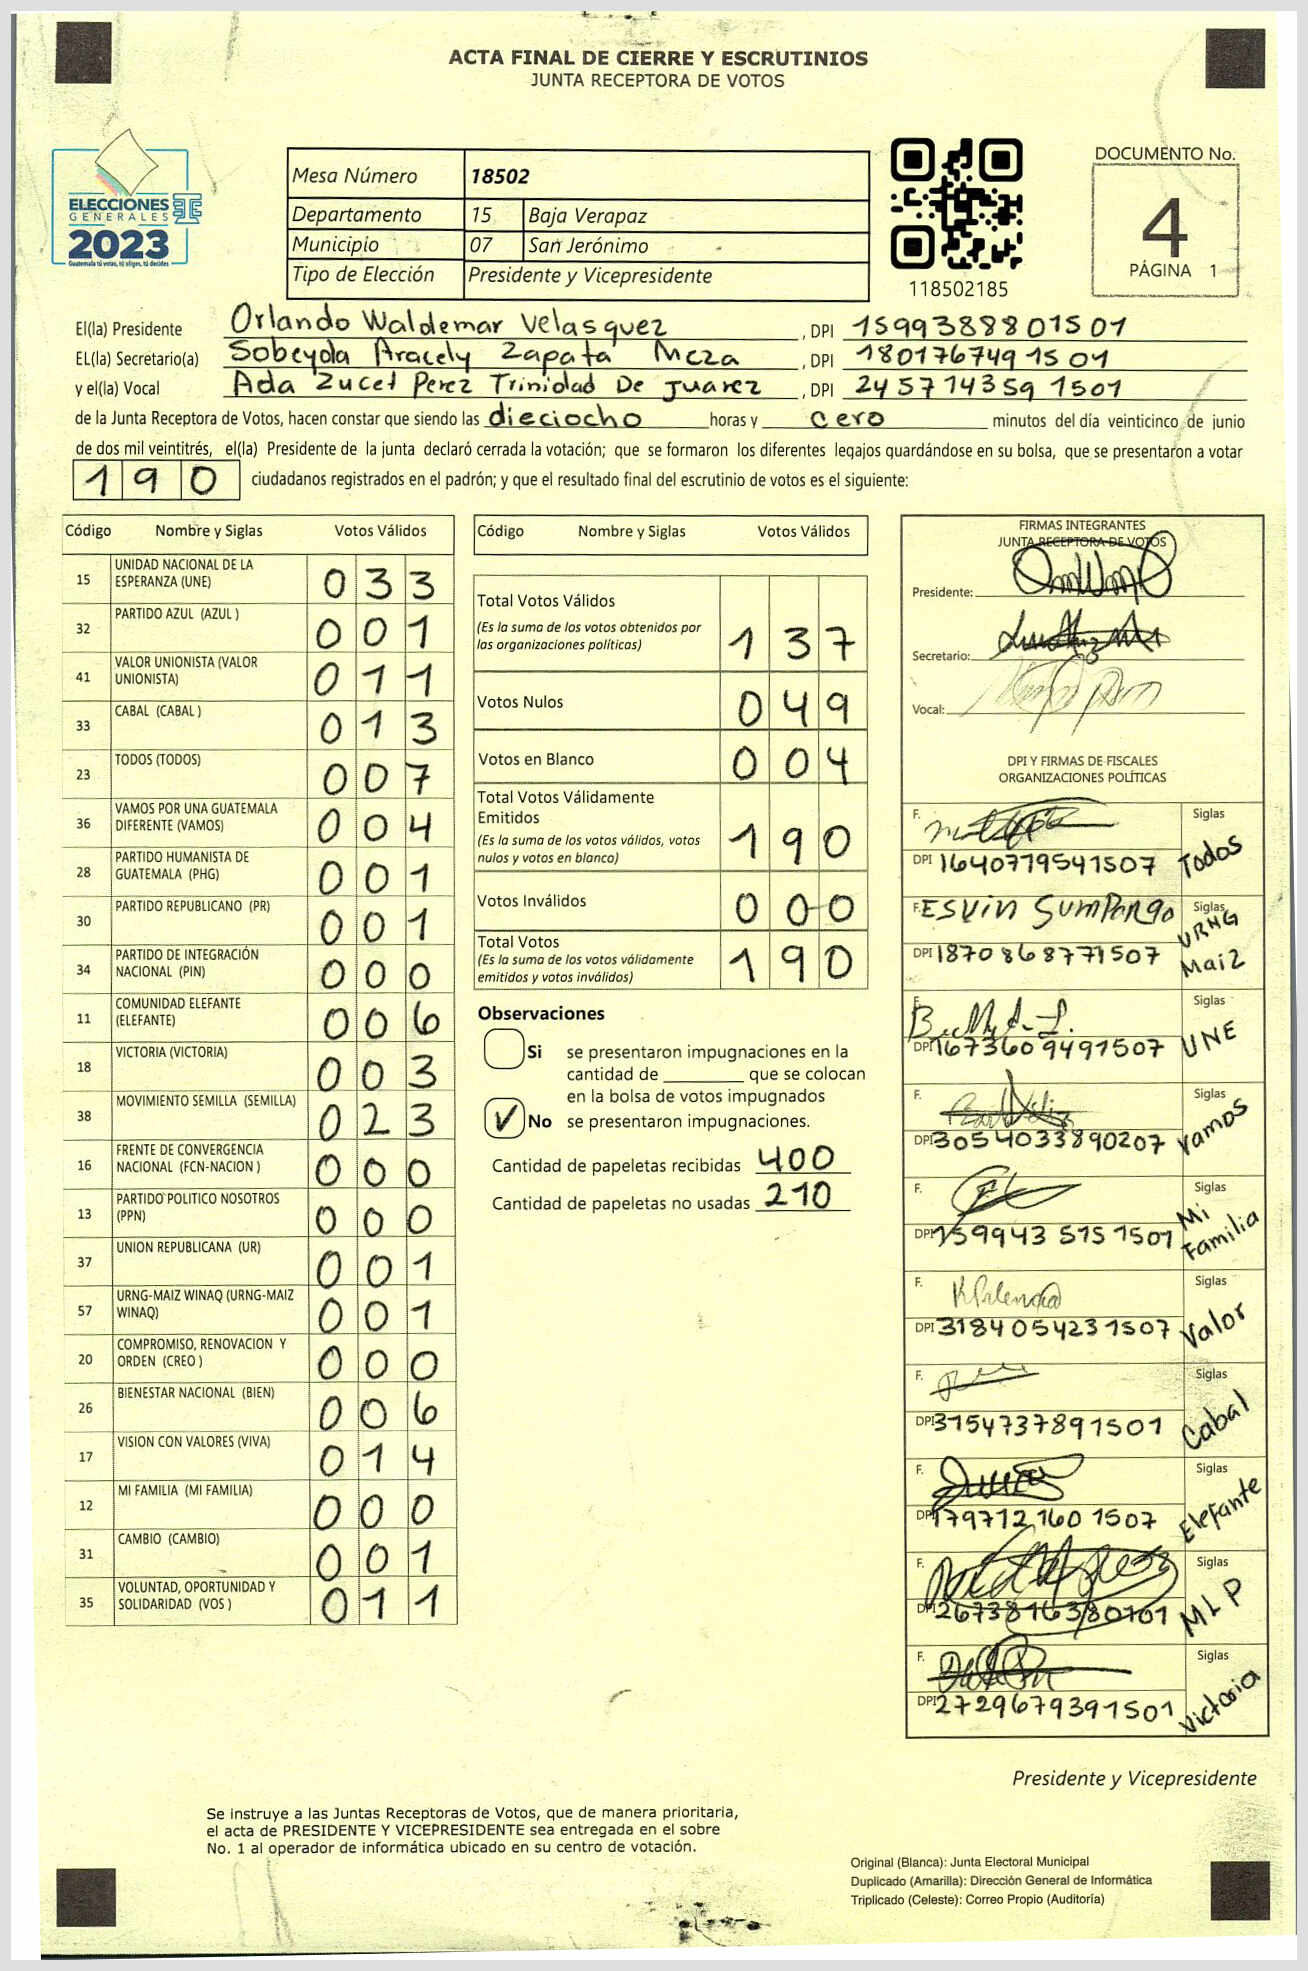 ACTA FINAL DE CIERRE Y ESCRUTINIOS
JUNTA RECEPTORA DE VOTOS
ELECCIONES
GENERALES
2023
Guatemala tú votas, tú eliges, tú decides
Mesa Número 18502
Departamento 15 Baja Verapaz
Municipio 07 San Jerónimo
Tipo de Elección Presidente y Vicepresidente
118502185
DOCUMENTO No.
4
PÁGINA 1
El(la) Presidente Orlando Waldemar Velasquez, DPI 1599388801501
EL(la) Secretario(a) Sobeyda Aracely Zapata Meza, DPI 1801767491501
y el(la) Vocal Ada Zucet Perez Trinidad De Juarez, DPI 2457143591501
de la Junta Receptora de Votos, hacen constar que siendo las dieciocho horas y cero minutos del día veinticinco de junio
de dos mil veintitrés, el(la) Presidente de la junta declaró cerrada la votación; que se formaron los diferentes legajos guardándose en su bolsa, que se presentaron a votar
190 ciudadanos registrados en el padrón; y que el resultado final del escrutinio de votos es el siguiente:
Código Nombre y Siglas Votos Válidos
15 UNIDAD NACIONAL DE LA ESPERANZA (UNE) 033
32 PARTIDO AZUL (AZUL ) 001
41 VALOR UNIONISTA (VALOR UNIONISTA) 011
33 CABAL (CABAL ) 013
23 TODOS (TODOS) 007
36 VAMOS POR UNA GUATEMALA DIFERENTE (VAMOS) 004
28 PARTIDO HUMANISTA DE GUATEMALA (PHG) 001
30 PARTIDO REPUBLICANO (PR) 001
34 PARTIDO DE INTEGRACIÓN NACIONAL (PIN) 000
11 COMUNIDAD ELEFANTE (ELEFANTE) 006
18 VICTORIA (VICTORIA) 003
38 MOVIMIENTO SEMILLA (SEMILLA) 023
16 FRENTE DE CONVERGENCIA NACIONAL (FCN-NACION ) 000
13 PARTIDO POLITICO NOSOTROS (PPN) 000
37 UNION REPUBLICANA (UR) 001
57 URNG-MAIZ WINAQ (URNG-MAIZ WINAQ) 001
20 COMPROMISO, RENOVACION Y ORDEN (CREO ) 000
26 BIENESTAR NACIONAL (BIEN) 006
17 VISION CON VALORES (VIVA) 014
12 MI FAMILIA (MI FAMILIA) 000
31 CAMBIO (CAMBIO) 001
35 VOLUNTAD, OPORTUNIDAD Y SOLIDARIDAD (VOS ) 011
Código Nombre y Siglas Votos Válidos
Total Votos Válidos 137
(Es la suma de los votos obtenidos por
las organizaciones políticas)
Votos Nulos 049
Votos en Blanco 004
Total Votos Válidamente
Emitidos 190
(Es la suma de los votos válidos, votos
nulos y votos en blanco)
Votos Inválidos 000
Total Votos 190
(Es la suma de los votos válidamente
emitidos y votos inválidos)
Observaciones
Si se presentaron impugnaciones en la
cantidad de ________ que se colocan
en la bolsa de votos impugnados
✓ No se presentaron impugnaciones.
Cantidad de papeletas recibidas 400
Cantidad de papeletas no usadas 210
FIRMAS INTEGRANTES
JUNTA RECEPTORA DE VOTOS
Presidente:
Secretario:
Vocal:
DPI Y FIRMAS DE FISCALES
ORGANIZACIONES POLÍTICAS
F. Siglas
DPI 1640779541507 Todos
F. ESVin SUMPango Siglas URNG
DPI 1870868771507 Maiz
F. Siglas
DPI 1673609491507 UNE
F. Siglas
DPI 3054033890207 Vamos
F. Siglas
DPI 1599435151501 Mi Familia
F. KPalencia Siglas
DPI 3184054231507 Valor
F. Siglas
DPI 3154737891501 Cabal
F. Siglas
DPI 1797121601507 Elefante
F. Siglas
DPI 2673816380101 MLP
F. Siglas
DPI 2729679391501 Victoria
Presidente y Vicepresidente
Se instruye a las Juntas Receptoras de Votos, que de manera prioritaria,
el acta de PRESIDENTE Y VICEPRESIDENTE sea entregada en el sobre
No. 1 al operador de informática ubicado en su centro de votación.
Original (Blanca): Junta Electoral Municipal
Duplicado (Amarilla): Dirección General de Informática
Triplicado (Celeste): Correo Propio (Auditoría)